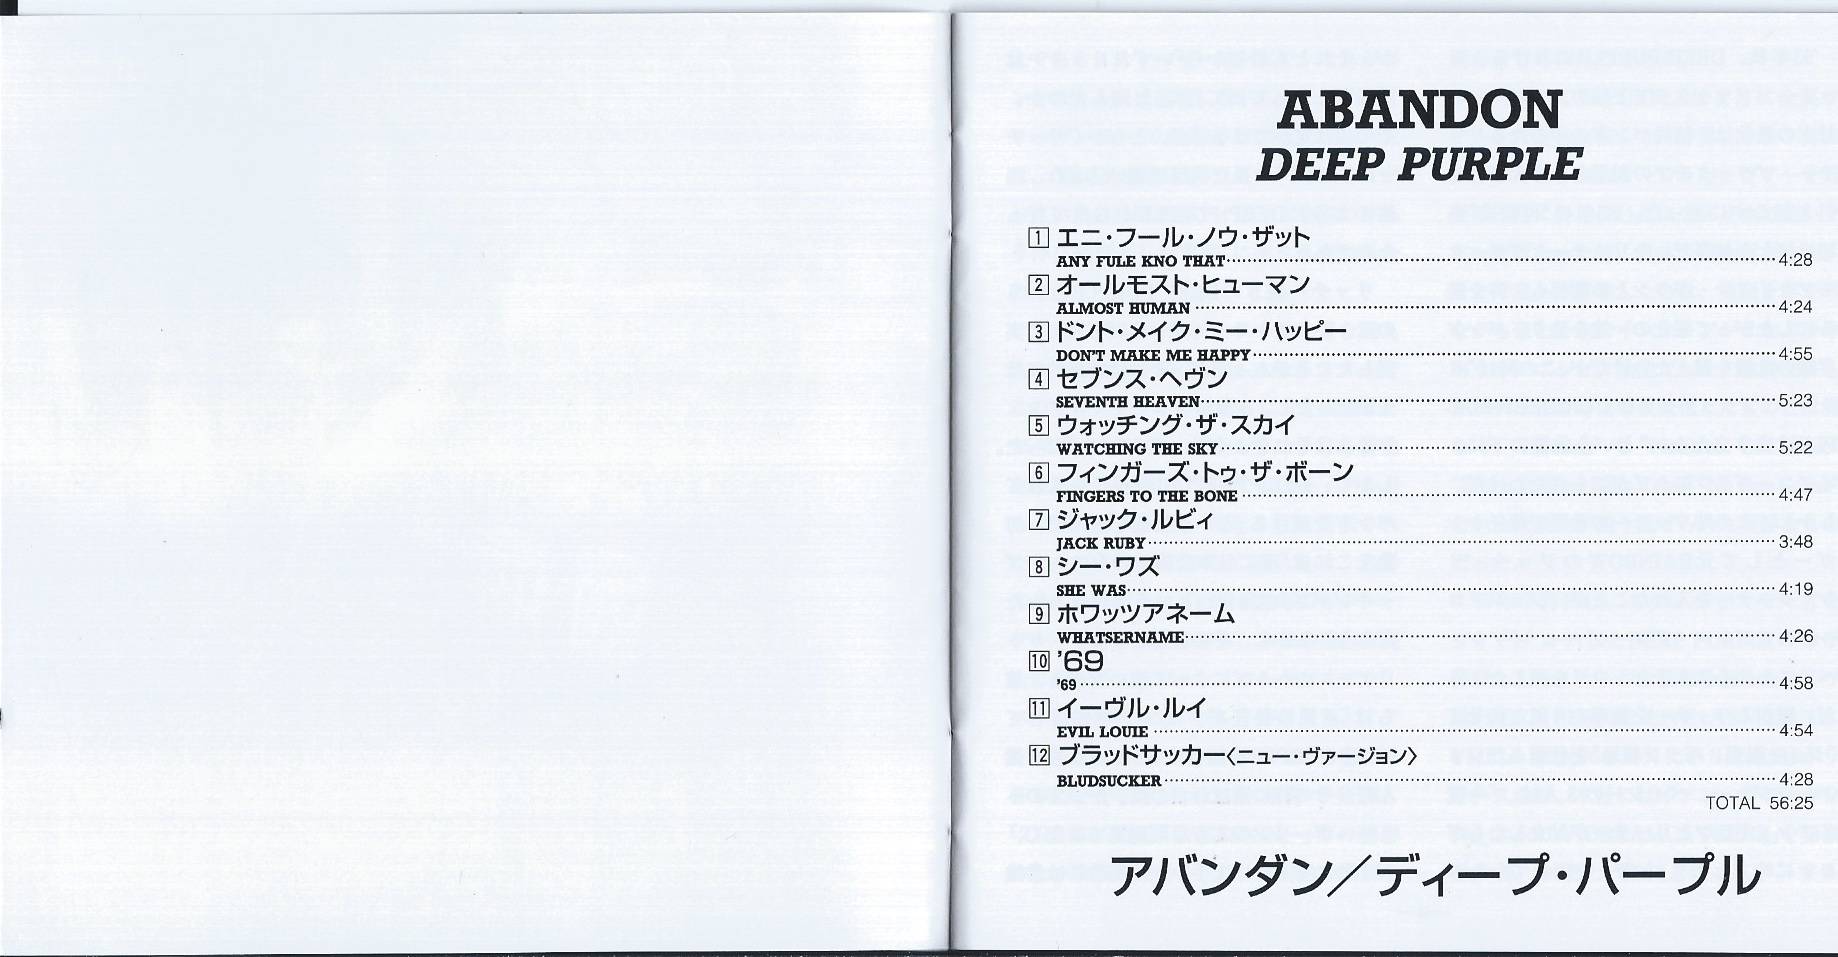 ABANDON
DEEP PURPLE
1 エニ・フール・ノウ・ザット
ANY FULE KNO THAT 4:28
2 オールモスト・ヒューマン
ALMOST HUMAN 4:24
3 ドント・メイク・ミー・ハッピー
DON'T MAKE ME HAPPY 4:55
4 セブンス・ヘヴン
SEVENTH HEAVEN 5:23
5 ウォッチング・ザ・スカイ
WATCHING THE SKY 5:22
6 フィンガーズ・トゥ・ザ・ボーン
FINGERS TO THE BONE 4:47
7 ジャック・ルビィ
JACK RUBY 3:48
8 シー・ワズ
SHE WAS 4:19
9 ホワッツアネーム
WHATSERNAME 4:26
10 '69
'69 4:58
11 イーヴル・ルイ
EVIL LOUIE 4:54
12 ブラッドサッカー〈ニュー・ヴァージョン〉
BLUDSUCKER 4:28
TOTAL 56:25
アバンダン／ディープ・パープル